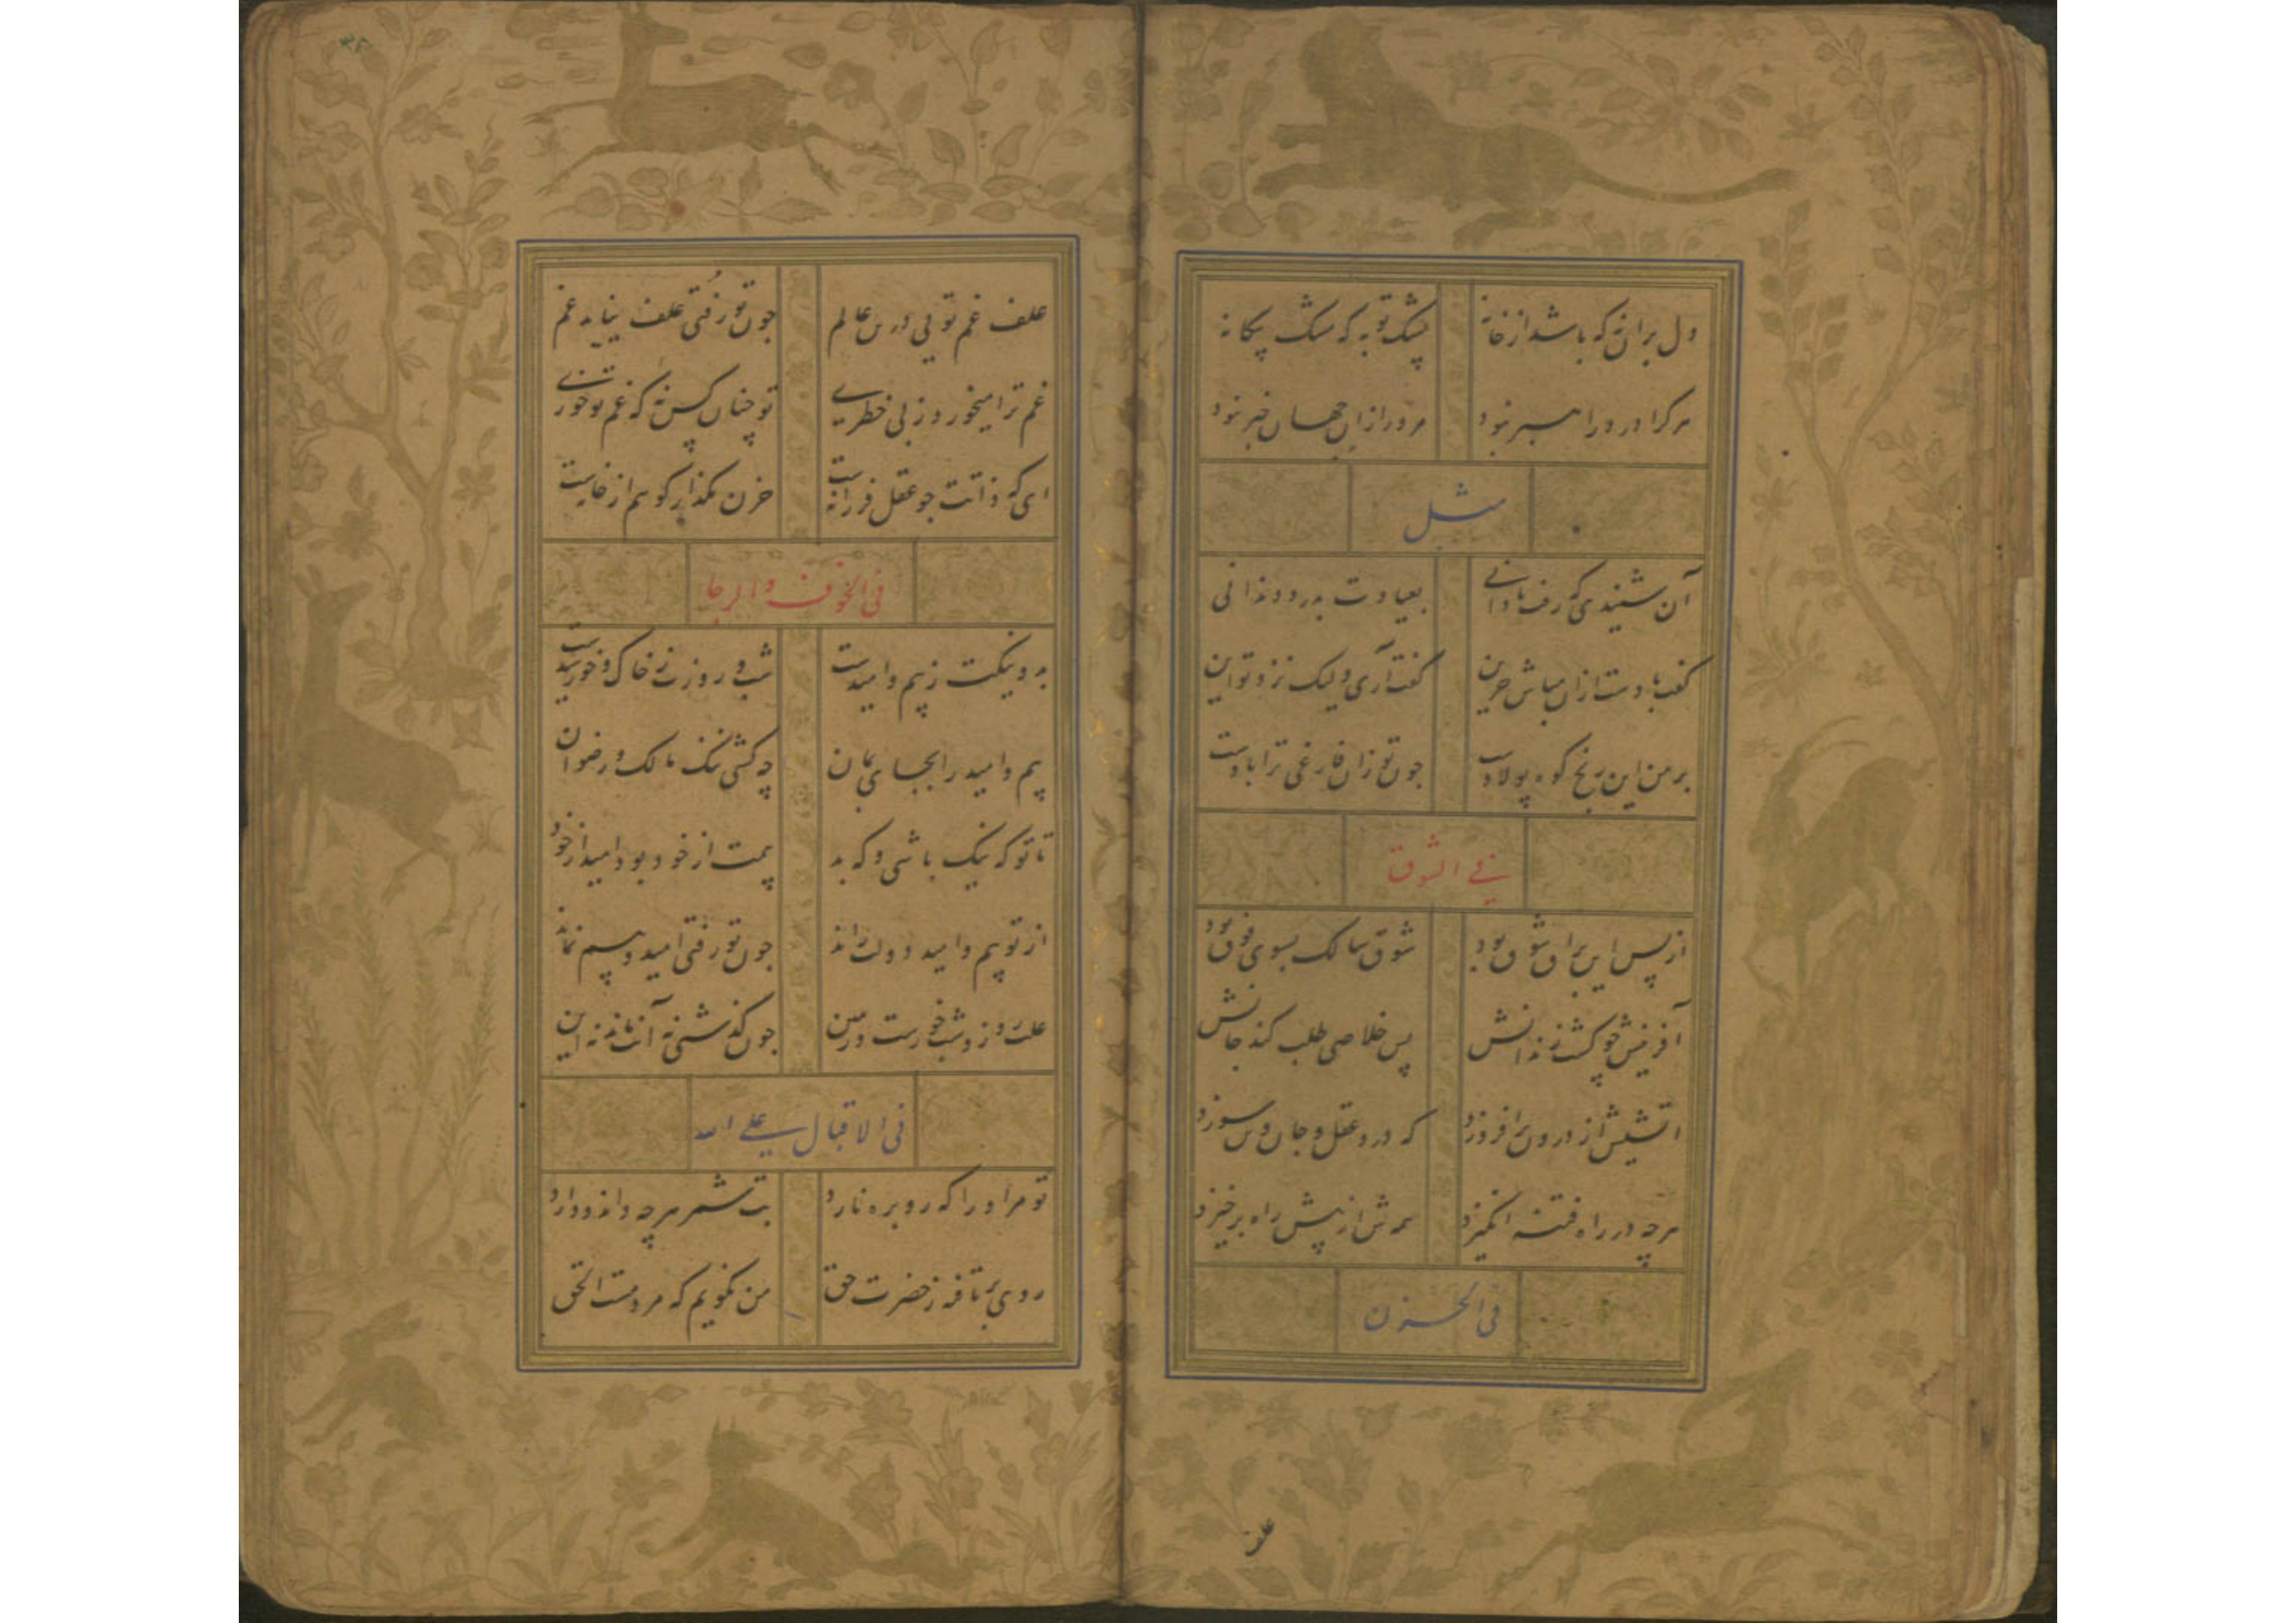 دل بران نه که باشد از خانه پشک تو به که مشک بیکانه
هرکرا درد راهبر نبود مرد را زان جهان خبر نبود
مثل
آن شنیدی که رفت نادانی بعیادت بدرد دندانی
کفت بادست ازان مباش حزین کفت آری ولیک نزد تو این
بر من این رنج کوه پولادست چون تو زان فارغی ترا بادست
فی الشوق
از پس این براق شوق بود شوق سالک بسوی فوق بود
آفرینش چو کشت زندانش پس خلاصی طلب کند جانش
آتشیش از درون برافروزد که درو عقل و جان و سوزد
هرچه در راه فتنه انکیزد همه‌ش از پیش راه برخیزد
فی الحزن
علف
علف غم تویی درین عالم چون تو رفتی علف نیابد غم
غم ترا میخورد ز بی خطری تو چنان کس نه که غم تو خوری
ای که ذاتت چو عقل فرزانه‌ست حزن مکذار کو هم از خانه‌ست
فی الخوف والرجا
بد و نیکت ز بیم و امیدست شب و روزت ز خاک و خورشیدست
بیم و امید را بجای بمان چه کشی ننک مالک و رضوان
تا تو که نیک باشی و که بد بیمت از خود بود و امید از خود
از تو بیم و امید دولت راند چون تو رفتی امید و بیم نماند
علت روز و شب خورست و زمین چون کذشتی نه آنت ماند نه این
فی الاقبال علی الله
تو مر او را که رو بره نارد بت شمر هرچه داند و دارد
روی برتافته ز حضرت حق من نکویم که مردمست الحق